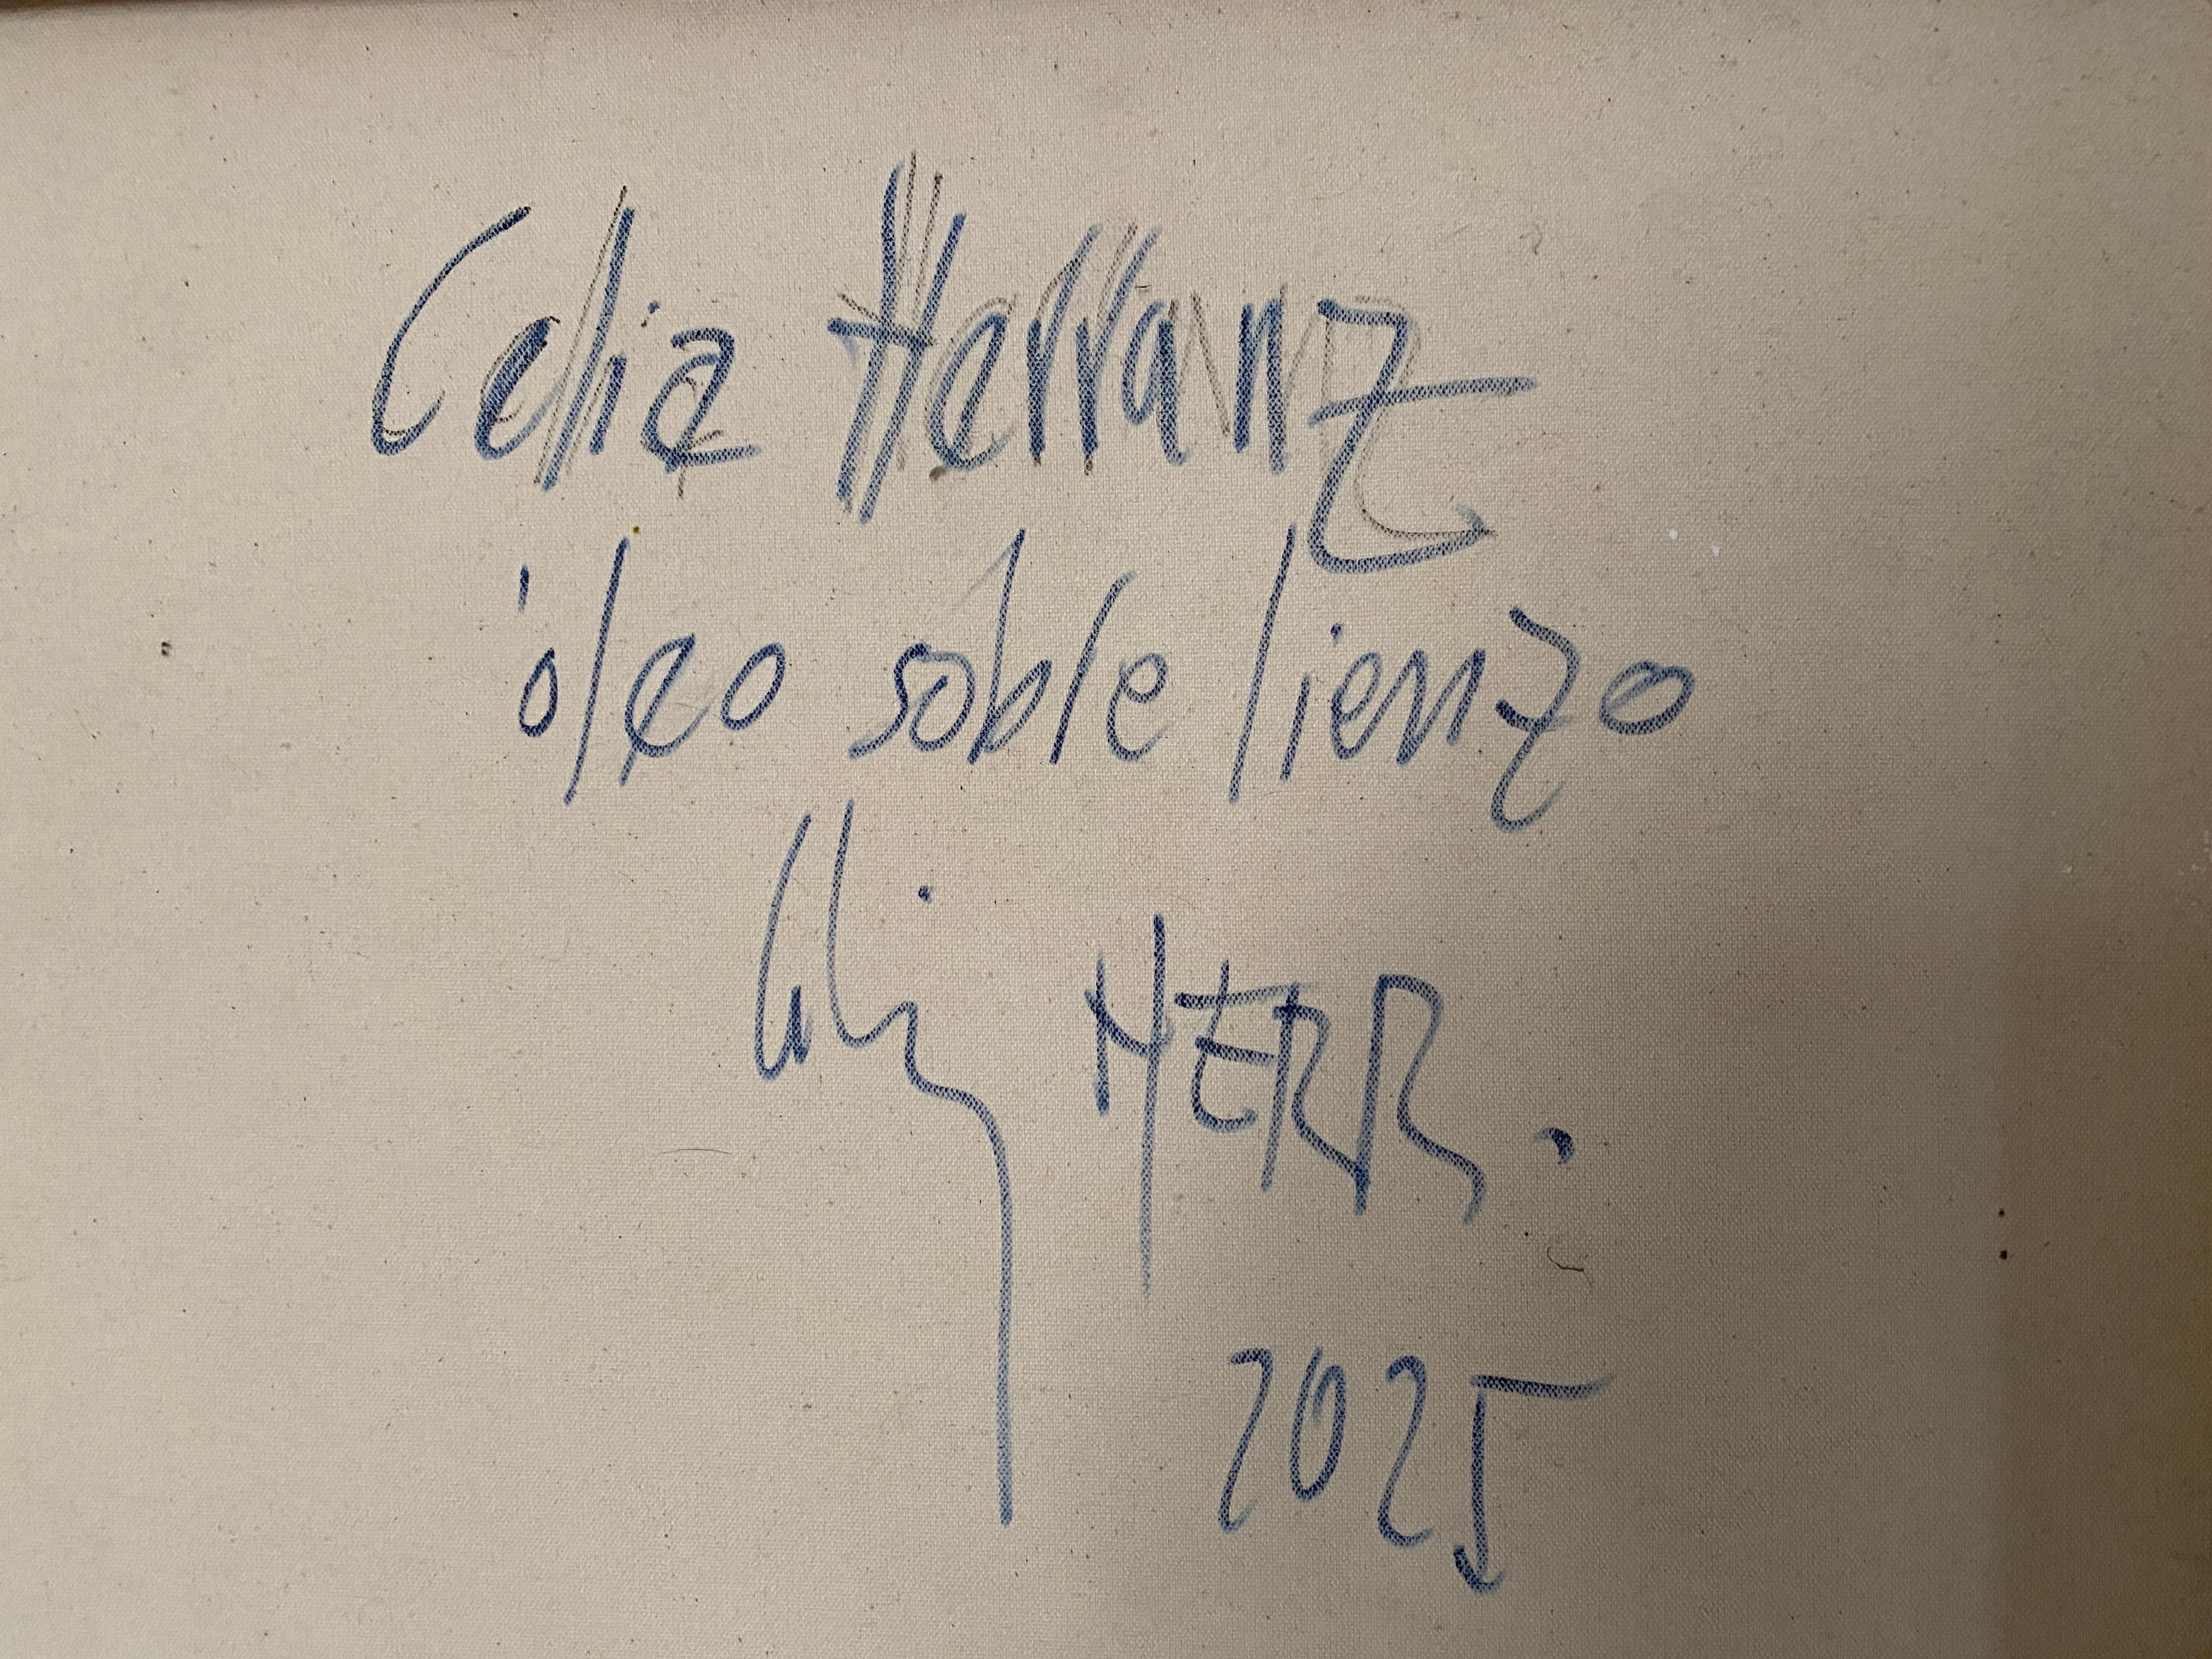 Celia Herranz
óleo sobre lienzo
Celia HERR.
2025